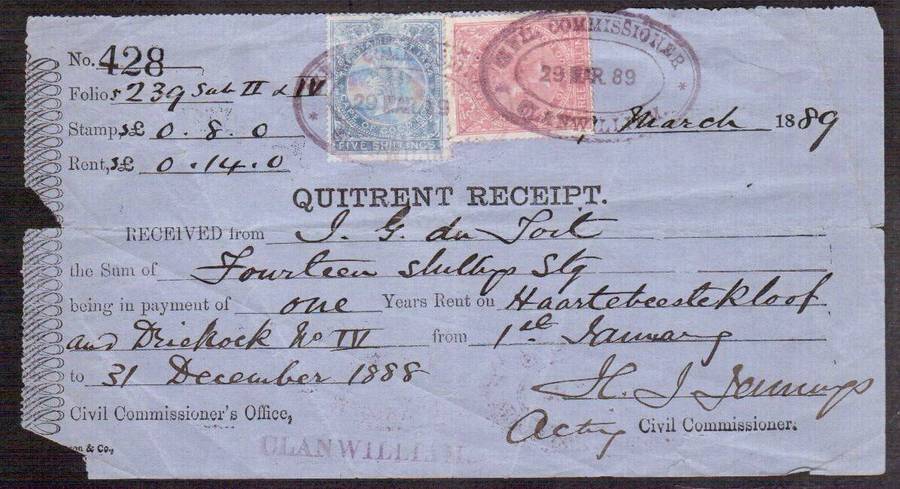 No. 428
Folios 239 Sub II & IV
Stamps £ 0. 8. 0
Rent, £ 0. 14. 0
FIVE SHILLINGS
CIVIL COMMISSIONER
29 MAR 89
CLANWILLIAM
29 MAR 89
March 1889
QUITRENT RECEIPT.
RECEIVED from J. G. du Toit
the Sum of Fourteen shillings Stg
being in payment of one Years Rent on Haartebeestekloof
and Driehoek No IV from 1st January
to 31 December 1888
H. J. Jennings
Civil Commissioner's Office, Acting Civil Commissioner.
& Co.,
CLANWILLIAM.